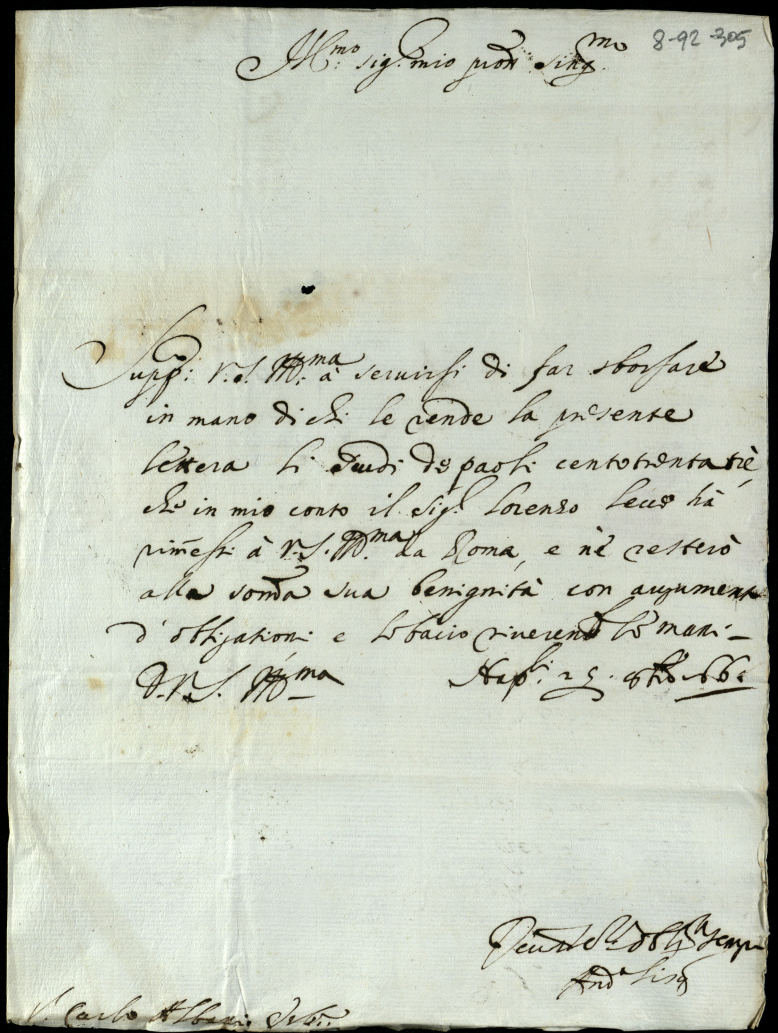 8-92-305
Ill.mo sig.r mio pron sing.mo
Supp.co V.S. Ill.ma à seruirsi di far sborsare
in mano di chi le rende la presente
lettera li scudi de paoli centotrenta trè
che in mio conto il sig.r Lorenzo hà
rimessi à V.S. Ill.ma da Roma, e nè resterò
alla somma sua benignità con augumento
d'obligationi e le bacio riuerente le mani
D. V.S. Ill.ma Nap.li 25
sempre
And.a
S.r Carlo Albani